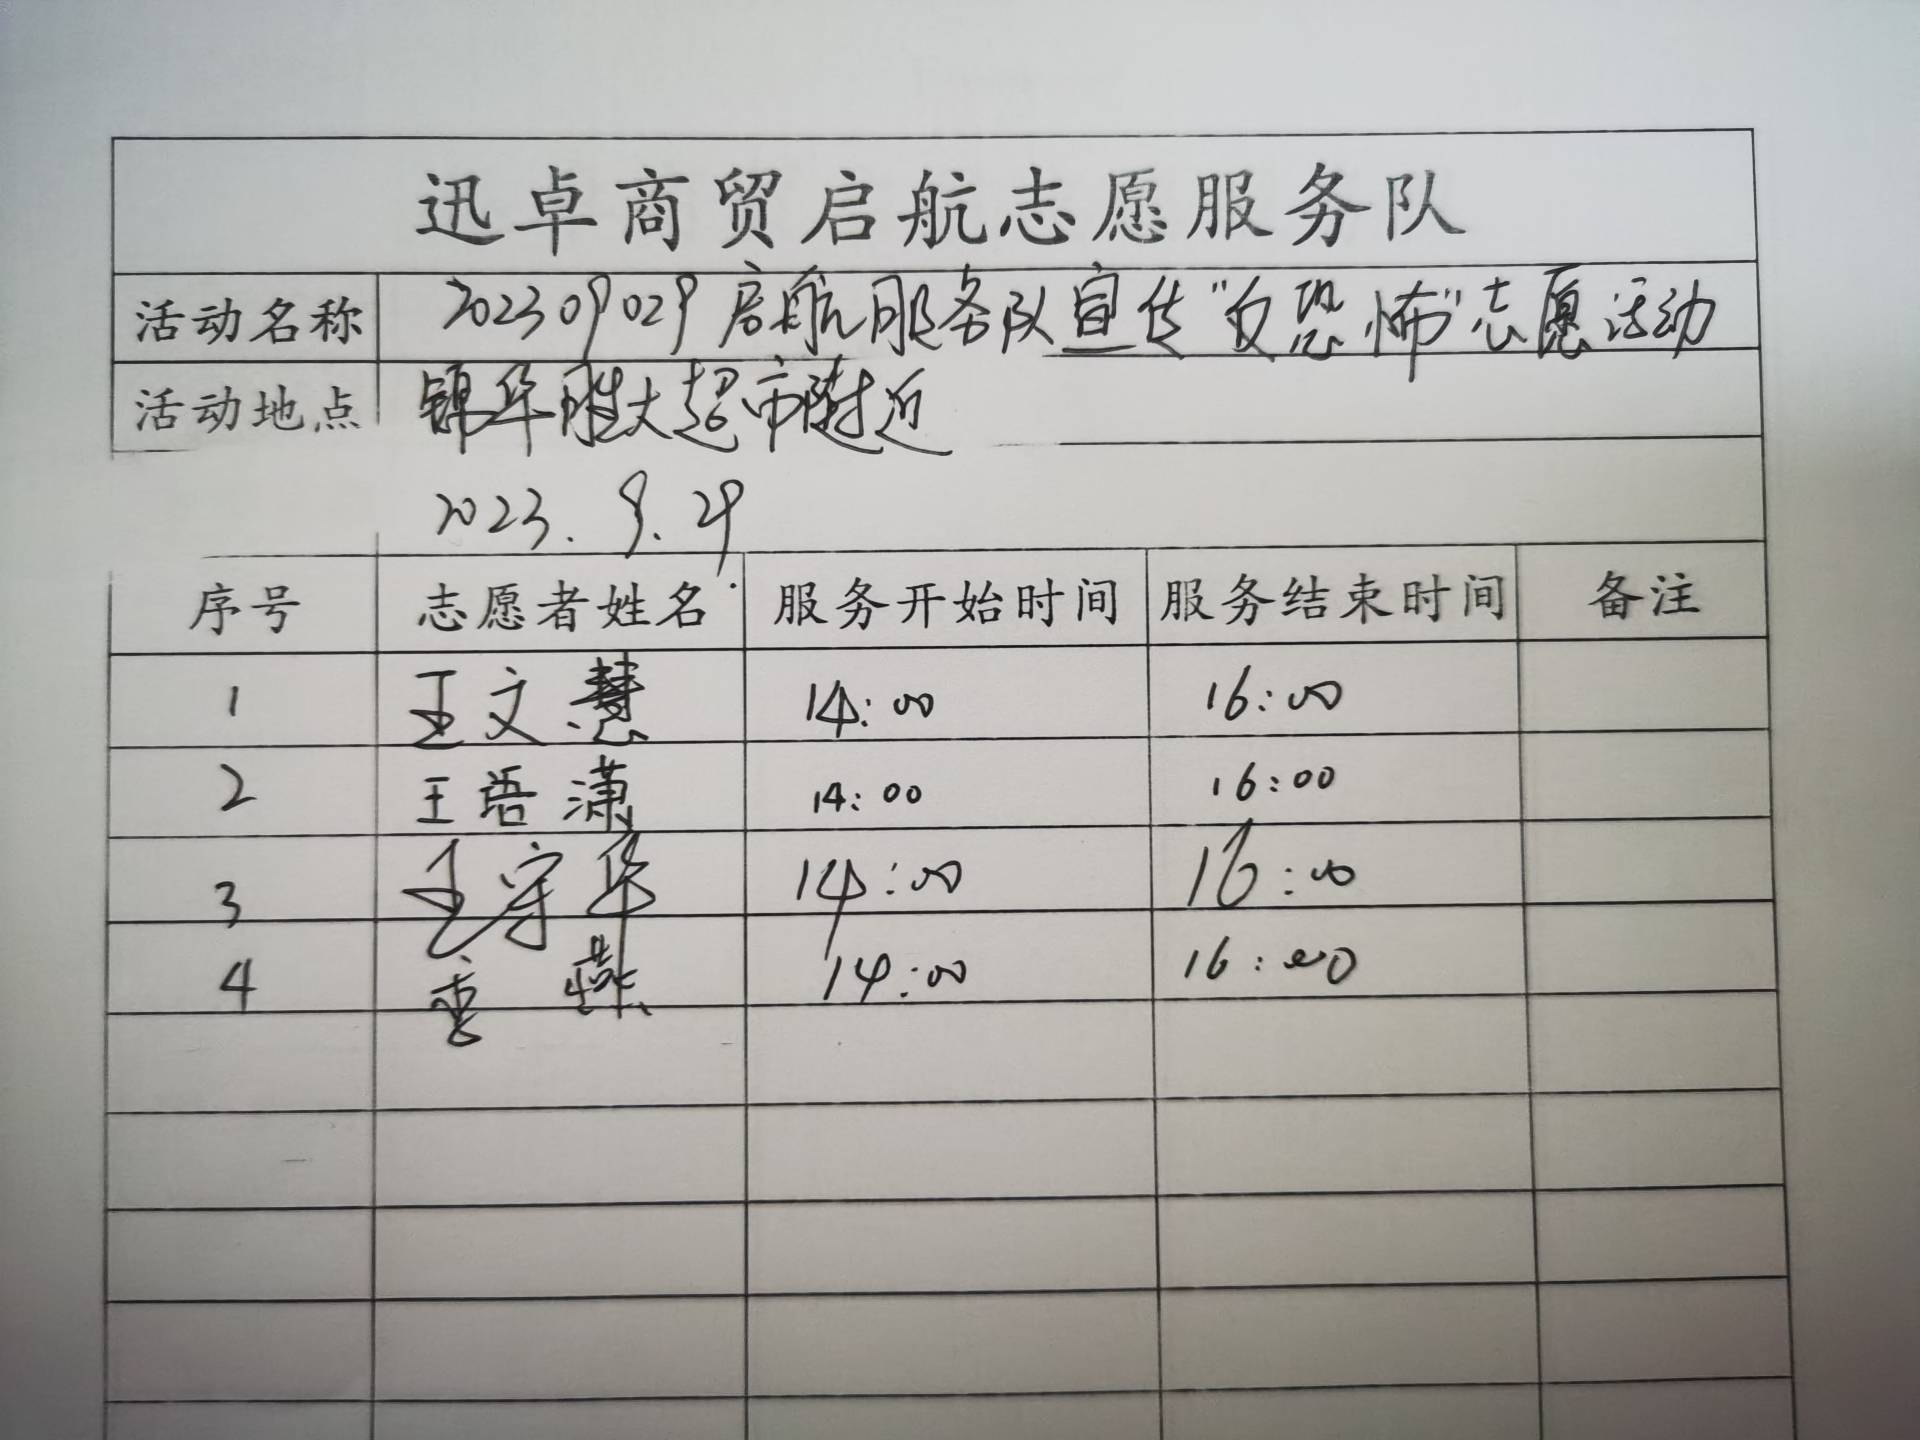 迅卓商贸启航志愿服务队
活动名称 202309029启航服务队宣传"反恐怖"志愿活动
活动地点 锦华胜大超市附近
2023.9.29
序号 志愿者姓名 服务开始时间 服务结束时间 备注
1 王文慧 14:00 16:00
2 王语潇 14:00 16:00
3 王守华 14:00 16:00
4 李燕 14:00 16:00